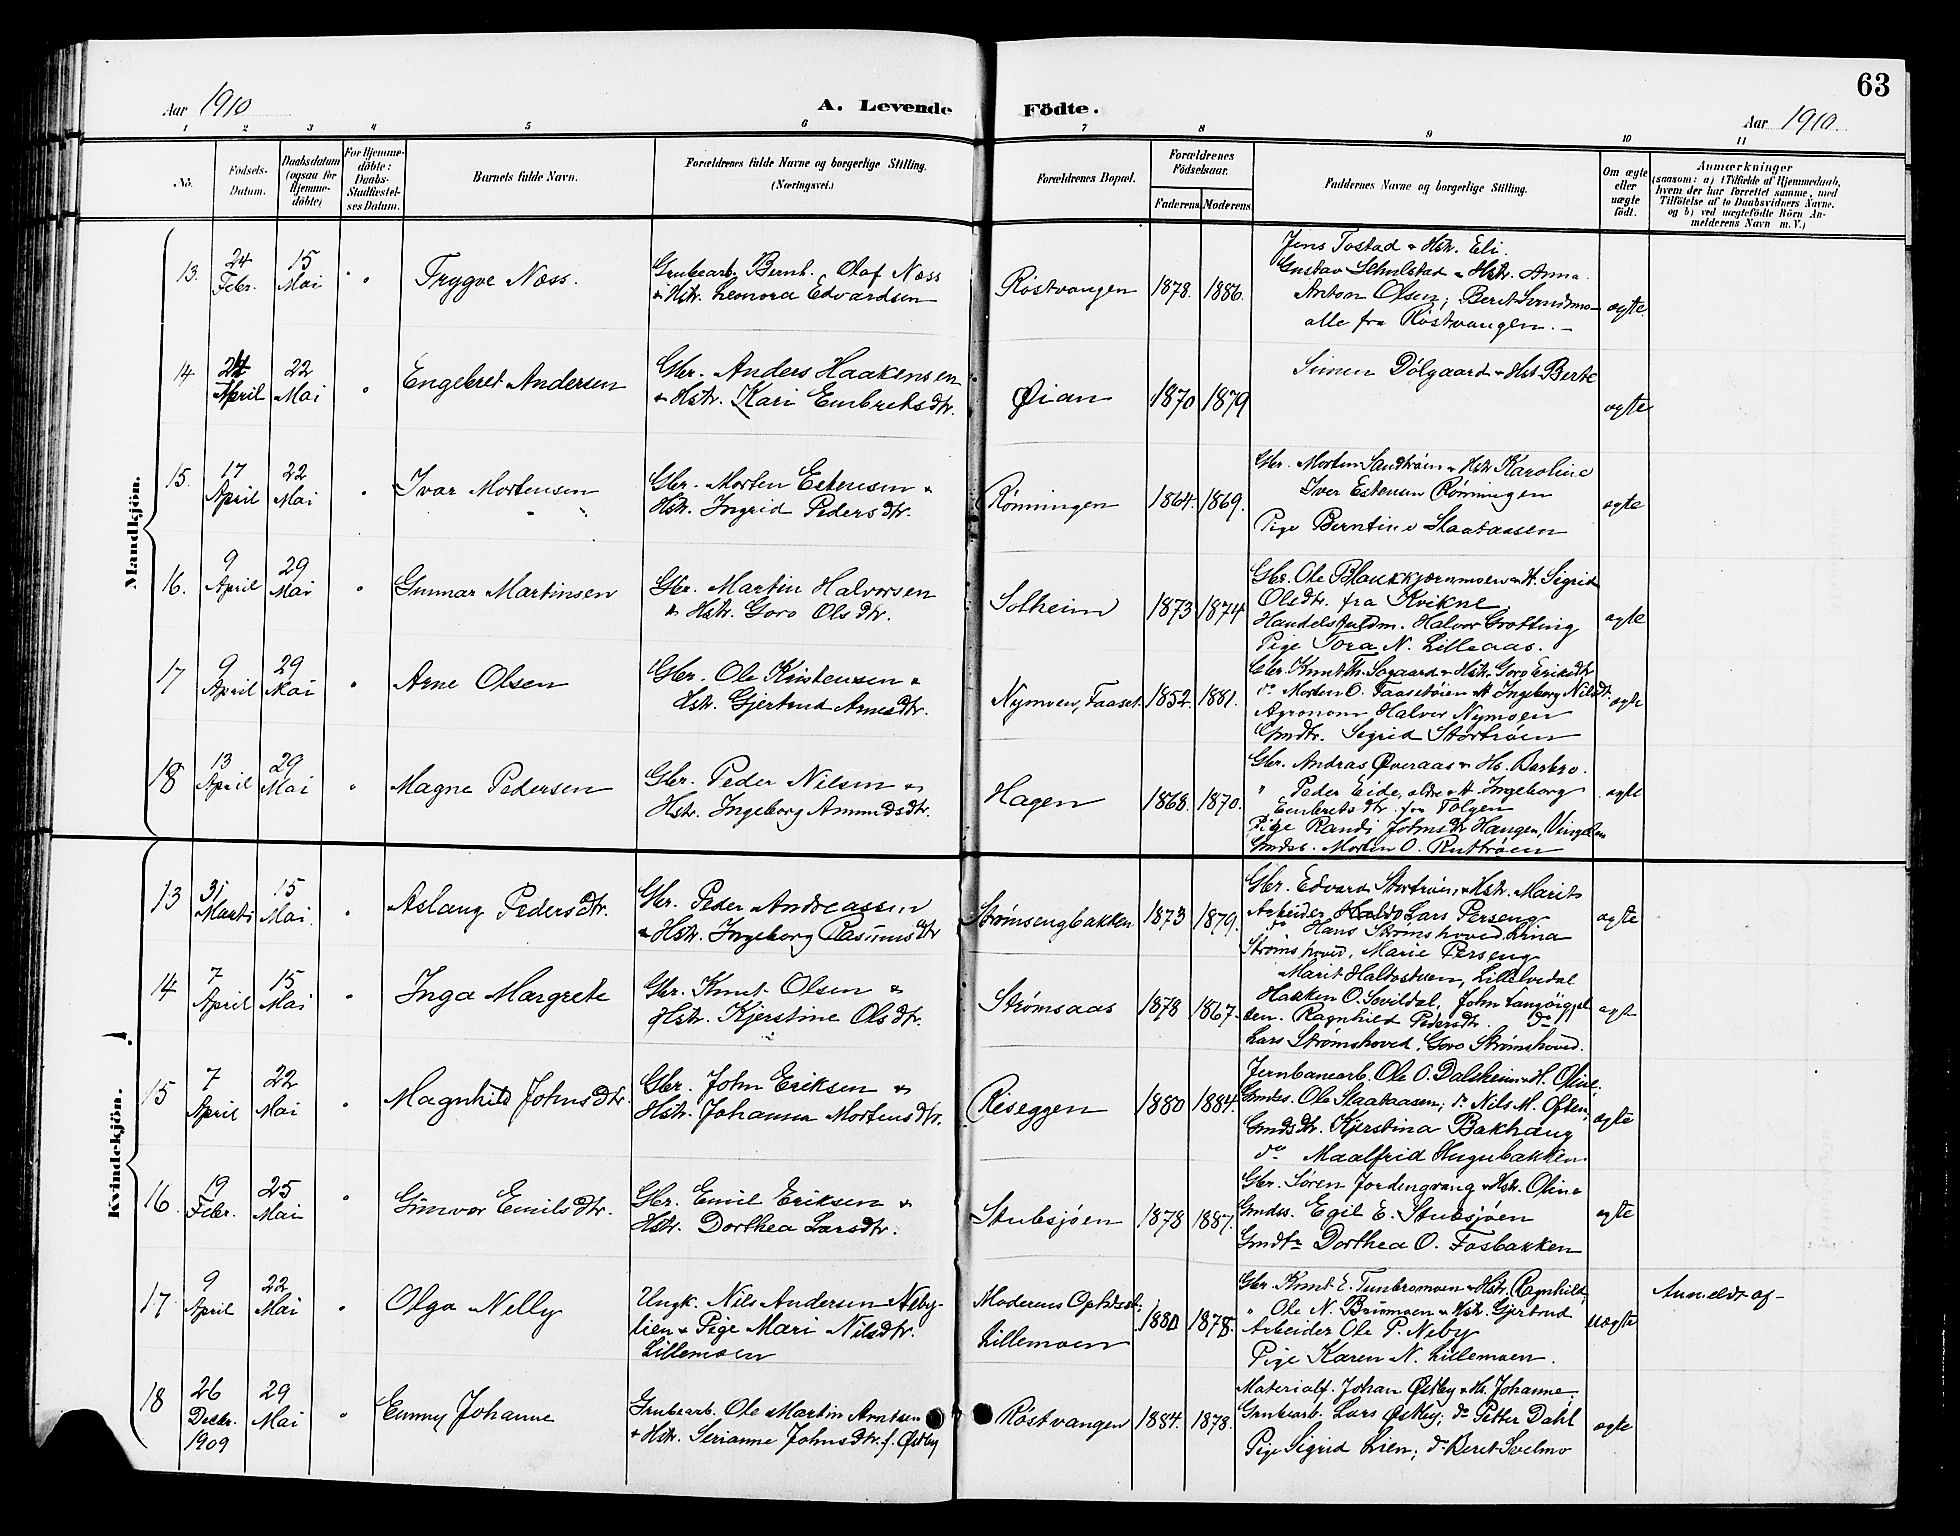 63
Aar 1910
A. Levende
Födte.
Aar 1910.
1 2 3 4 5 6 7 8 9 10 11
No.
Födsels-
Datum.
Daabsdatum
(ogsaa for
Hjemme-
döbte)
For Hjemme-
döbte:
Daabs-
Stadfæstel-
ses Datum.
Barnets fulde Navn.
Forældrenes fulde Navne og borgerlige Stilling.
(Næringsvei.)
Forældrenes Bopæl.
Forældrenes
Födselsaar.
Faderens Moderens
Faddernes Navne og borgerlige Stilling.
Om ægte
eller
uægte
födt.
Anmærkninger
(saasom: a) i Tilfælde af Hjemmedaab,
hvem der har forrettet samme, med
Tilföielse af to Daabsvidners Navne.
og b) ved uægtefödte Börn An-
melderens Navn m. V.)
Mandkjön.
13.
24
Febr.
15
Mai
"
Trygve Næss.
Grubearb. Bernh. Olaf Næss
& Hstr. Leonora Edvardsen
Röstvangen
1878. 1886.
Jens Tostad & Hstr. Eli.
Gustav Schulstad & Hstr. Anna.
Anton Olsen; Beret
alle fra Röstvangen.
ægte.
14
24
April
22
Mai
"
Engebret Andersen
Gbr. Anders Haakensen
& Hstr. Kari Embretsdtr.
Øian
1870 1879
Simen Dölgaard & Hst Berte
ægte
15.
17
April
22
Mai
"
Ivar Mortensen
Gbr. Morten Estensen &
Hstr. Ingrid Pedersdtr.
Rønningen
1864. 1869.
Gbr. Morten Sandtrøen & Hstr Karoline
Iver Estensen Rønningen
Pige Berntine Slaataasen
ægte
16.
9
April
29
Mai
"
Gunnar Martinsen
Gbr. Martin Halvorsen
& Hstr. Goro Olsdtr.
Solheim
1873 1874
Gbr. Ole Blaukkjærnmoen & H. Sigrid
Olsdtr. fra Kvikne
Handelsfuldm. Halvor Grotting
Pige Tora N. Lilleaas.
ægte
17
9
April
29
Mai
"
Arne Olsen
Gbr. Ole Kristensen &
Hstr. Gjertrud Arnesdtr.
Nymoen, Faaset
1852 1881.
Gbr. Knut Th. Søgaard & Hstr. Goro Eriksdtr
do Morten O. Faasetøien & H Ingeborg Nilsdtr.
Agronom Halvor Nymoen
Gmdtr. Sigrid Stortrøen
ægte
18
13
April
29
Mai
"
Magne Pedersen
Gbr. Peder Nilsen &
Hstr. Ingeborg Amundsdtr.
Hagen
1868. 1870.
Gbr. Andras Øveraas & Hs. Barbro.
" Peder Eide, ældre & H Ingeborg
Embretsdtr. fra Tolgen
Pige Randi Johnsdtr Haugen, Vingelen
Gmds. Morten O. Ruttrøen
ægte
Kvindekjön.
13
31
Marts
15
Mai.
"
Aslaug Pedersdtr.
Gbr. Peder Andreassen
& Hstr. Ingeborg Rasmusdtr
Strømsengbakken
1873 1879.
Gbr. Edvard Stortrøen, & Hstr. Marit
Arbeider Lars Perseng
do Hans Strømshoved, Lina
Strømshoved, Marie Perseng
ægte
14
7
April
15
Mai
"
Inga Margrete
Gbr. Knut Olsen &
Hstr. Kjerstine Olsdtr.
Strømsaas
1878 1867.
Marit Haltostuen, Lilleelvedal
Hakken O. Sevildal, John Langöiggel
ten. Ragnhild Pedersdtr. do
Lars Strømshoved, Goro Strømshoved.
ægte
15
7
April
22
Mai
"
Magnhild Johnsdtr.
Gbr. John Eriksen &
Hstr. Johanna Mortensdtr.
Riseggen
1880 1884.
Jernbanearb. Ole O. Dalsheim & H. Oline,
Gmds. Ole Slaataasen; do Nils M. Often,
Gmdsdtr. Kjerstina Bakhaug
do Maalfrid Haugebakken.
ægte
16.
19
Febr.
25
Mai
"
Gunvor Emilsdtr.
Gbr. Emil Eriksen &
Hstr. Dorthea Larsdtr.
Stubsjøen
1878 1887.
Gbr. Søren Jordengvang & Hstr. Oline
Gmds. Egil E. Stubsjøen
Gmdtr Dorthea O. Fosbakken
ægte
17
9
April
22
Mai
"
Olga Nelly
Ungk. Nils Andersen Neby-
lien & Pige Mari Nilsdtr.
Lillemoen
Moderens Opholdsst:
Lillemoen
1880 1878.
Gbr. Knut E. Tunbromoen & Hstr. Ragnhild,
" Ole N. Brumoen & Hstr. Gjertrud
Arbeider Ole P. Neby
Pige Karen N. Lillemoen.
uægte
Anmeldt af -
18
26
Decbr.
1909
29
Mai
"
Emmy Johanne
Grubearb. Ole Martin Arntsen
& Hstr. Serianne Johnsdtr. f. Østby
Röstvangen
1884. 1878.
Materialf. Johan Østby & Hs. Johanne;
Grubearb. Lars Østby; do Petter Dahl
Pige Sigrid Lien; do Beret Sevelmo
ægte